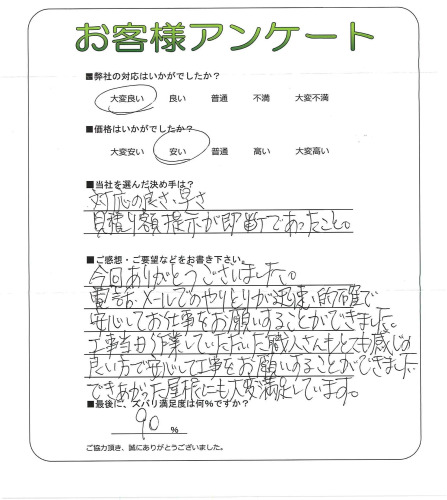 お客様アンケート
■弊社の対応はいかがでしたか？
大変良い 良い 普通 不満 大変不満
■価格はいかがでしたか？
大変安い 安い 普通 高い 大変高い
■当社を選んだ決め手は？
対応の良さ、早さ
見積り額提示が即断であったこと。
■ご感想・ご要望などをお書き下さい。
今回ありがとうございました。
電話、メールでのやりとりが迅速、的確で
安心してお仕事をお願いすることができました。
工事当日作業していただいた職人さんもとても感じの
良い方で安心して工事をお願いすることができました
できあがった屋根にも大変満足しています。
■最後に、ズバリ満足度は何％ですか？
90 %
ご協力頂き、誠にありがとうございました。